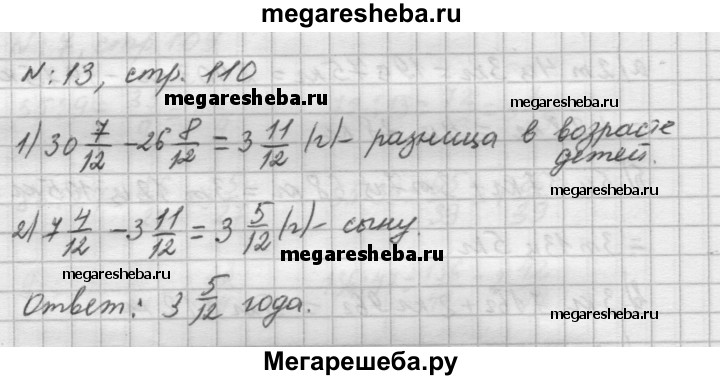 megaresheba.ru
№ 13, стр. 110
megaresheba.ru megaresheba.ru
1) 30 7/12 - 26 8/12 = 3 11/12 (г) - разница в возрасте
детей.
megaresheba.ru
2) 7 4/12 - 3 11/12 = 3 5/12 (г) - сыну.
megaresheba.ru
megaresheba.ru
Ответ: 3 5/12 года.
Мегарешеба.ру